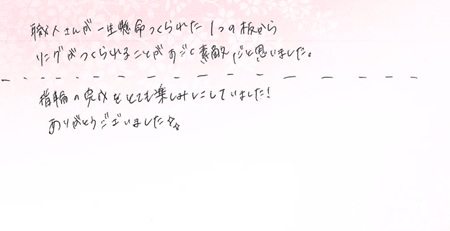 職人さんが一生懸命つくられた1つの板から
リングがつくられることがすごく素敵だと思いました。
指輪の完成をとても楽しみにしていました!
ありがとうございました☆☆